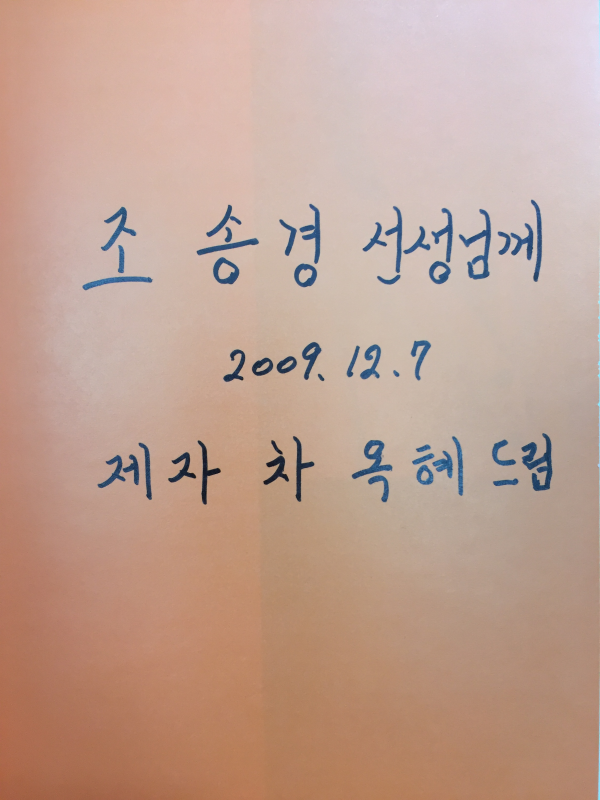 조 송경 선생님께
2009. 12. 7
제자 차 옥혜 드림